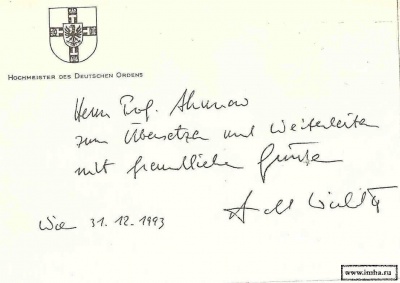 HOCHMEISTER DES DEUTSCHEN ORDENS
Herrn Prof.
zum Übersetzen und Weiterleiten
mit freundlichen Grüßen
Wien 31.12.1993
www.imha.ru